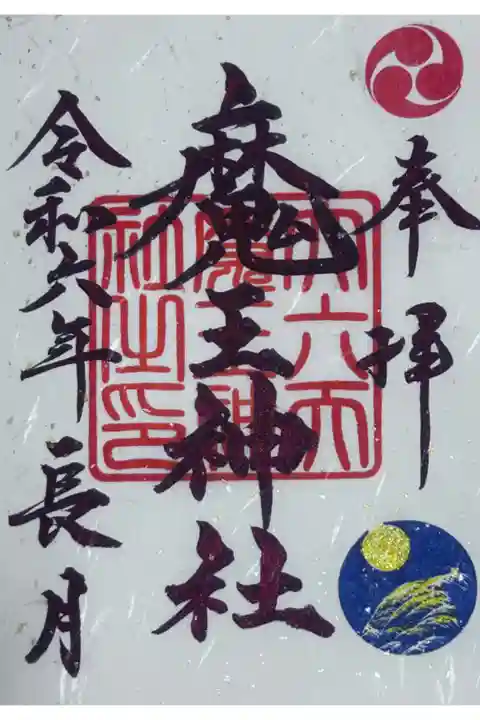 奉拝
魔王神社
令和六年長月
第六天
魔王神
社之印